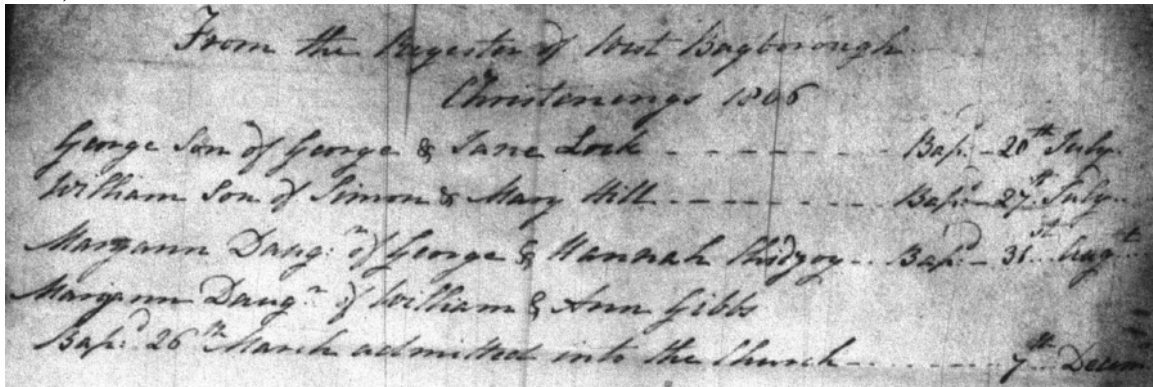 From the Register of West Bagborough
Christinings 1806
George Son of George & Jane Lock - - - - - - - Bap.d - 20th July
William Son of Simon & Mary Hill - - - - - - - Bap.d - 27th July
Maryann Daug.r of George & Hannah Chidgoy - - Bap.d - 31st Augt
Maryann Daug.r of William & Ann Gibbs
Bap.d 26th March admitted into the Church - - - - - - 7th Decem